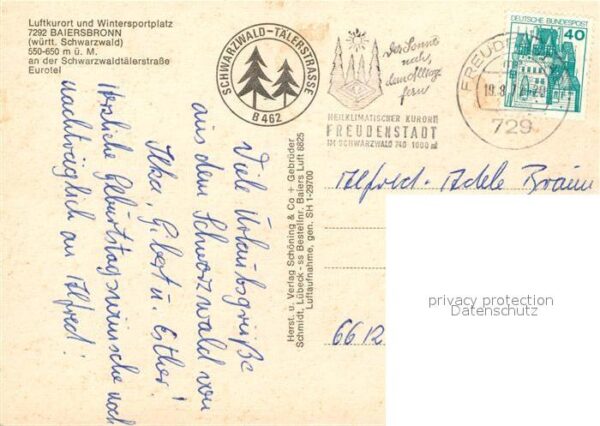 Luftkurort und Wintersportplatz
7292 BAIERSBRONN
(württ. Schwarzwald)
550-650 m ü. M.
an der Schwarzwaldtälerstraße
Eurotel
SCHWARZWALD-TÄLERSTRASSE
B 462
Der Sonne
nah,
dem Alltag
fern
HEILKLIMATISCHER KURORT
FREUDENSTADT
IM SCHWARZWALD 740-1000 m
FREUDEN
19.8.
729
DEUTSCHE BUNDESPOST
40
Viele Urlaubsgrüße
aus dem Schwarzwald von
Ilka, Gilbert u. Esther!
Herzliche Geburtstagswünsche noch
nachträglich an Alfred!
Herst. u. Verlag Schöning & Co + Gebrüder
Schmidt, Lübeck - ss Bestellnr. Baiers Luft 6825
Luftaufnahme, gen. SH 1-29700
Alfred - Adele Braun
6612
privacy protection
Datenschutz